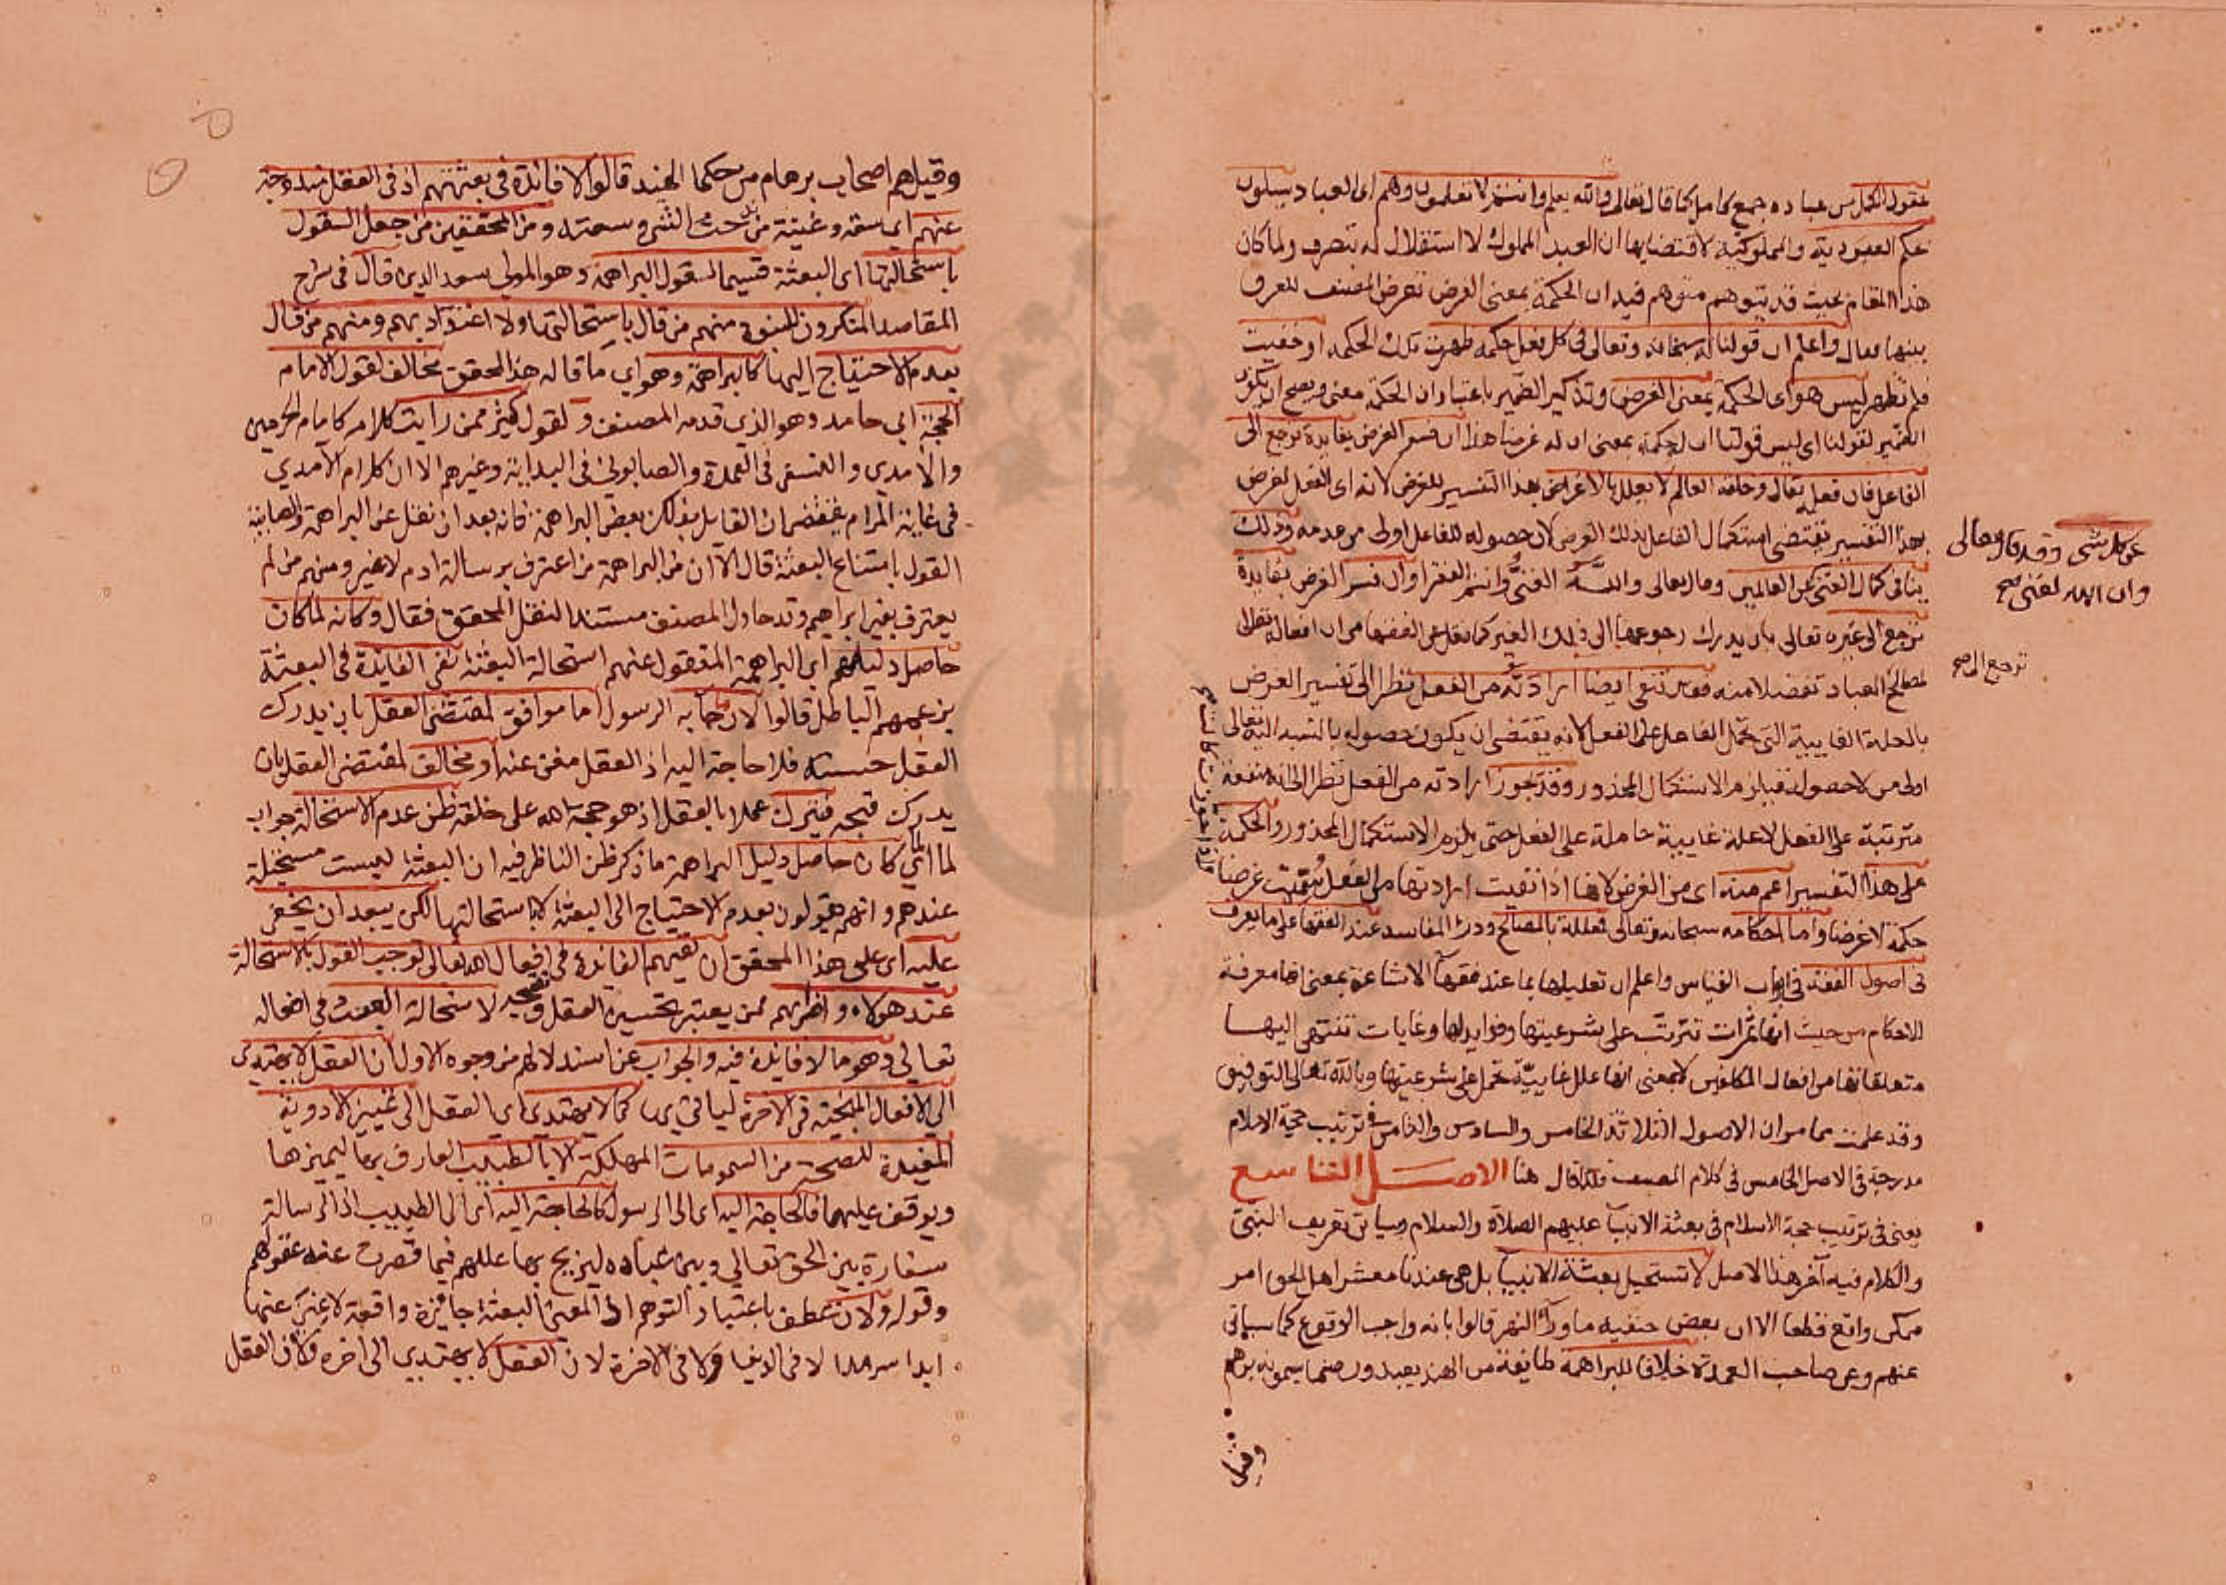 عقول الكمل من عباده جمع كامل كما قال تعالى والله يعلم وانتم لا تعلمون وهم اى العباد يسلون
بحكم العبودية والمملوكية لاقتضايها ان العبد المملوك لا استقلال له بتصرف ولما كان
هذا المقام بحيث قد يتوهم متوهم فيه ان الحكمة بمعنى الغرض تعرض المصنف للفرق
بينهما فقال واعلم ان قولنا له سبحانه وتعالى فى كل فعل حكمة ظهرت تلك الحكمة او خفيت
فلم تظهر ليس هو اى الحكمة بمعنى الغرض وتذكير الضمير باعتبار ان الحكمة معنى ويصح ان يكون
الضمير لقولنا اى ليس قولنا ان له حكمة بمعنى ان له غرضا هذا ان فسر الغرض بفايدة ترجع الى
الفاعل فان فعله تعالى وخلقه العالم لا يعلل بالاغراض بهذا التفسير للغرض لانه اى الفعل لغرض
بهذا التفسير يقتضى استكمال الفاعل بذلك الغرض لان حصوله للفاعل اولى من عدمه وذلك
ينافى كمال الغنى عن العالمين وقال تعالى والله الغنى وانتم الفقرا وان فسر الغرض بفايدة
ترجع الى غيره تعالى بان يدرك رجوعها الى ذلك الغير كما نقل عن الفقها من ان افعاله تعالى
لمصالح العباد تفضلا منه فقد تنفى ايضا ارادته من الفعل نظرا الى تفسير الغرض
بالعلة الغايية التى تحمل الفاعل على الفعل لانه يقتضى ان يكون حصوله بالنسبة اليه تعالى
اولى من لا حصوله فيلزم الاستكمال المحذور وقد تجوز ارادته من الفعل نظرا الى انه منفعة
مترتبة على الفعل لا علة غايية حاملة على الفعل حتى يلزم الاستكمال المحذور والحكمة
على هذا التفسير اعم منه اى من الغرض لانها اذا نفيت ارادتها من الفعل سميت غرضا
حكمة لا غرضا واما احكامه سبحانه وتعالى فمعللة بالمصالح ودرء المفاسد عند الفقها على ما يعرف
فى اصول الفقه فى ابواب القياس واعلم ان تعليلها بما عند فقها الاشاعرة بمعنى انها معرفة
للاحكام من حيث انها ثمرات تترتب على شرعيتها وفوايد لها وغايات تنتهى اليها
متعلقاتها من افعال المكلفين لا بمعنى انها علل غايية تحمل على شرعيتها وبالله تعالى التوفيق
وقد علمت مما مر ان الاصول الثلاثة الخامس والسادس والثامن فى ترتيب حجة الاسلام
مدرجة فى الاصل الخامس فى كلام المصنف فلذا قال هنا الاصل التاسع
يعنى فى ترتيب حجة الاسلام فى بعثة الانبيا عليهم الصلاة والسلام وسياتى تعريف النبى
والكلام فيه آخر هذا الاصل لا تستحيل بعثة الانبيا بل هى عندنا معشر اهل الحق امر
ممكن واقع قطعا الا ان بعض حنفية ماوراء النهر قالوا بانه واجب الوقوع كما سياتى
عنهم وعن صاحب العمدة خلافا للبراهمة طايفة من الهند يعبدون صنما يسمونه برهم
وقيل
عن كل شى وقد قال تعالى
وان الله لغنى صح
ترجع الى صح
وقيل هم اصحاب برهام من حكما الهند قالوا لا فائدة فى بعثتهم اذ فى العقل مندوحة
عنهم اى سعة وغنية من ندحت الشى وسعته ومن المحققين من جعل القول
باستحالتها اى البعثة قسيما لقول البراهمة وهو المولى سعد الدين قال فى شرح
المقاصد المنكرون للنبوة منهم من قال باستحالتها ولا اعتداد بهم ومنهم من قال
بعدم الاحتياج اليها كالبراهمة وهو اى ما قاله هذا المحقق مخالف لقول الامام
الحجة ابى حامد وهو الذى قدمه المصنف ولقول كثير ممن رايت كلامه كامام الحرمين
والآمدي والنسفى فى العمدة والصابونى فى البداية وغيرهم الا ان كلام الآمدي
فى غاية المرام يقتضى ان القايل بذلك بعض البراهمة فانه بعد ان نقل عن البراهمة والصابية
القول بامتناع البعثة قال الا ان من البراهمة من اعترف برسالة ادم لا غير ومنهم من لم
يعترف بغير ابراهيم وقد حاول المصنف مستندا لنقل المحقق فقال وكانه لما كان
حاصل دليلهم اى البراهمة المنقول عنهم استحالة البعثة نفى الفائدة فى البعثة
بزعمهم الباطل قالوا لان ما جا به الرسول اما موافق لمقتضى العقل بان يدرك
العقل حسنه فلا حاجة اليه اذ العقل مغن عنه او مخالف لمقتضى العقل بان
يدرك قبحه فيترك عملا بالعقل اذ هو حجة الله على خلقه ظن عدم الاستحالة جواب
لما اى لما كان حاصل دليل البراهمة ما ذكر ظن الناظر فيه ان البعثة ليست مستحيلة
عندهم وانهم يقولون بعدم الاحتياج الى البعثة لا باستحالتها لكن يبعد ان يخفى
عليه اى على هذا المحقق ان نفيهم الفايدة فى افعال الله تعالى توجب القول بالاستحالة
عند هولاء واضرابهم ممن يعتبر تحسين العقل وتقبيحه لاستحالة العبث فى افعاله
تعالى وهو ما لا فايدة فيه والجواب عن استدلالهم من وجوه الاول ان العقل لا يهتدى
الى الافعال المنجية فى الاخرة كما لا يهتدى اى العقل الى تمييز الادوية
المفيدة للصحة من السمومات المهلكة الا بالطبيب العارف بها ليميزها
ويوقف عليها فالحاجة اليه اى الى الرسول كالحاجة اليه اى الى الطبيب اذ الرسالة
سفارة بين الحق تعالى وبين عباده ليزيح بها عللهم فيما قصرت عنه عقولهم
وقوله ولان عطف باعتبار التوهم اذ المعنى البعثة جائزة واقعة لا غنى عنها
ابدا سرمدا لا فى الدنيا ولا فى الاخرة لان العقل لا يهتدى الى اخره ولان العقل